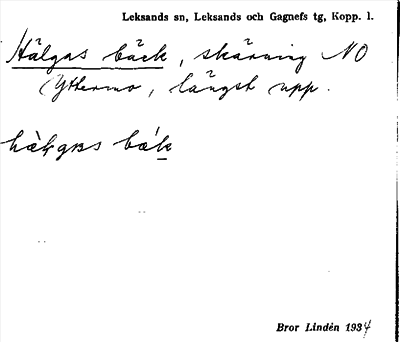 Leksands sn, Leksands och Gagnefs tg, Kopp. l.
Hälgas bäck, skärning NO
Yttermo, längst upp.
bäk
Bror Lindén 1934